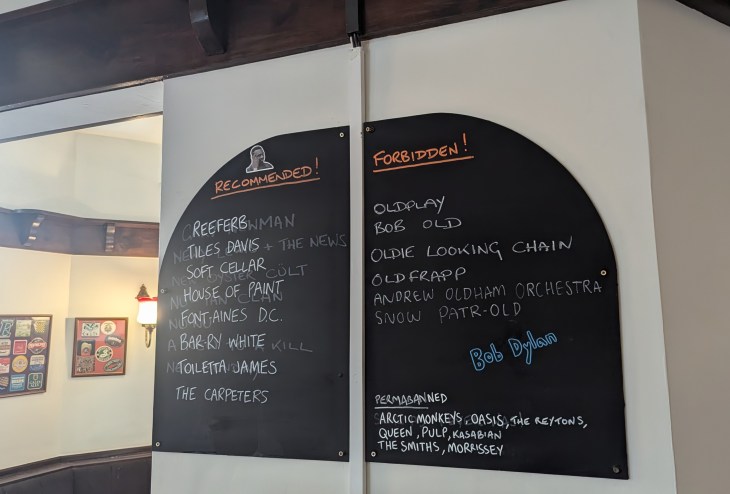 RECOMMENDED!
REEFERB
TILES DAVIS
SOFT CELLAR
HOUSE OF PAINT
FONT-AINES D.C.
BAR-RY WHITE
TOILETTA JAMES
THE CARPETERS
FORBIDDEN!
OLDPLAY
BOB OLD
OLDIE LOOKING CHAIN
OLDFRAPP
ANDREW OLDHAM ORCHESTRA
SNOW PATR-OLD
Bob Dylan
PERMABANNED
ARCTIC MONKEYS, OASIS, THE REYTONS,
QUEEN, PULP, KASABIAN
THE SMITHS, MORRISSEY